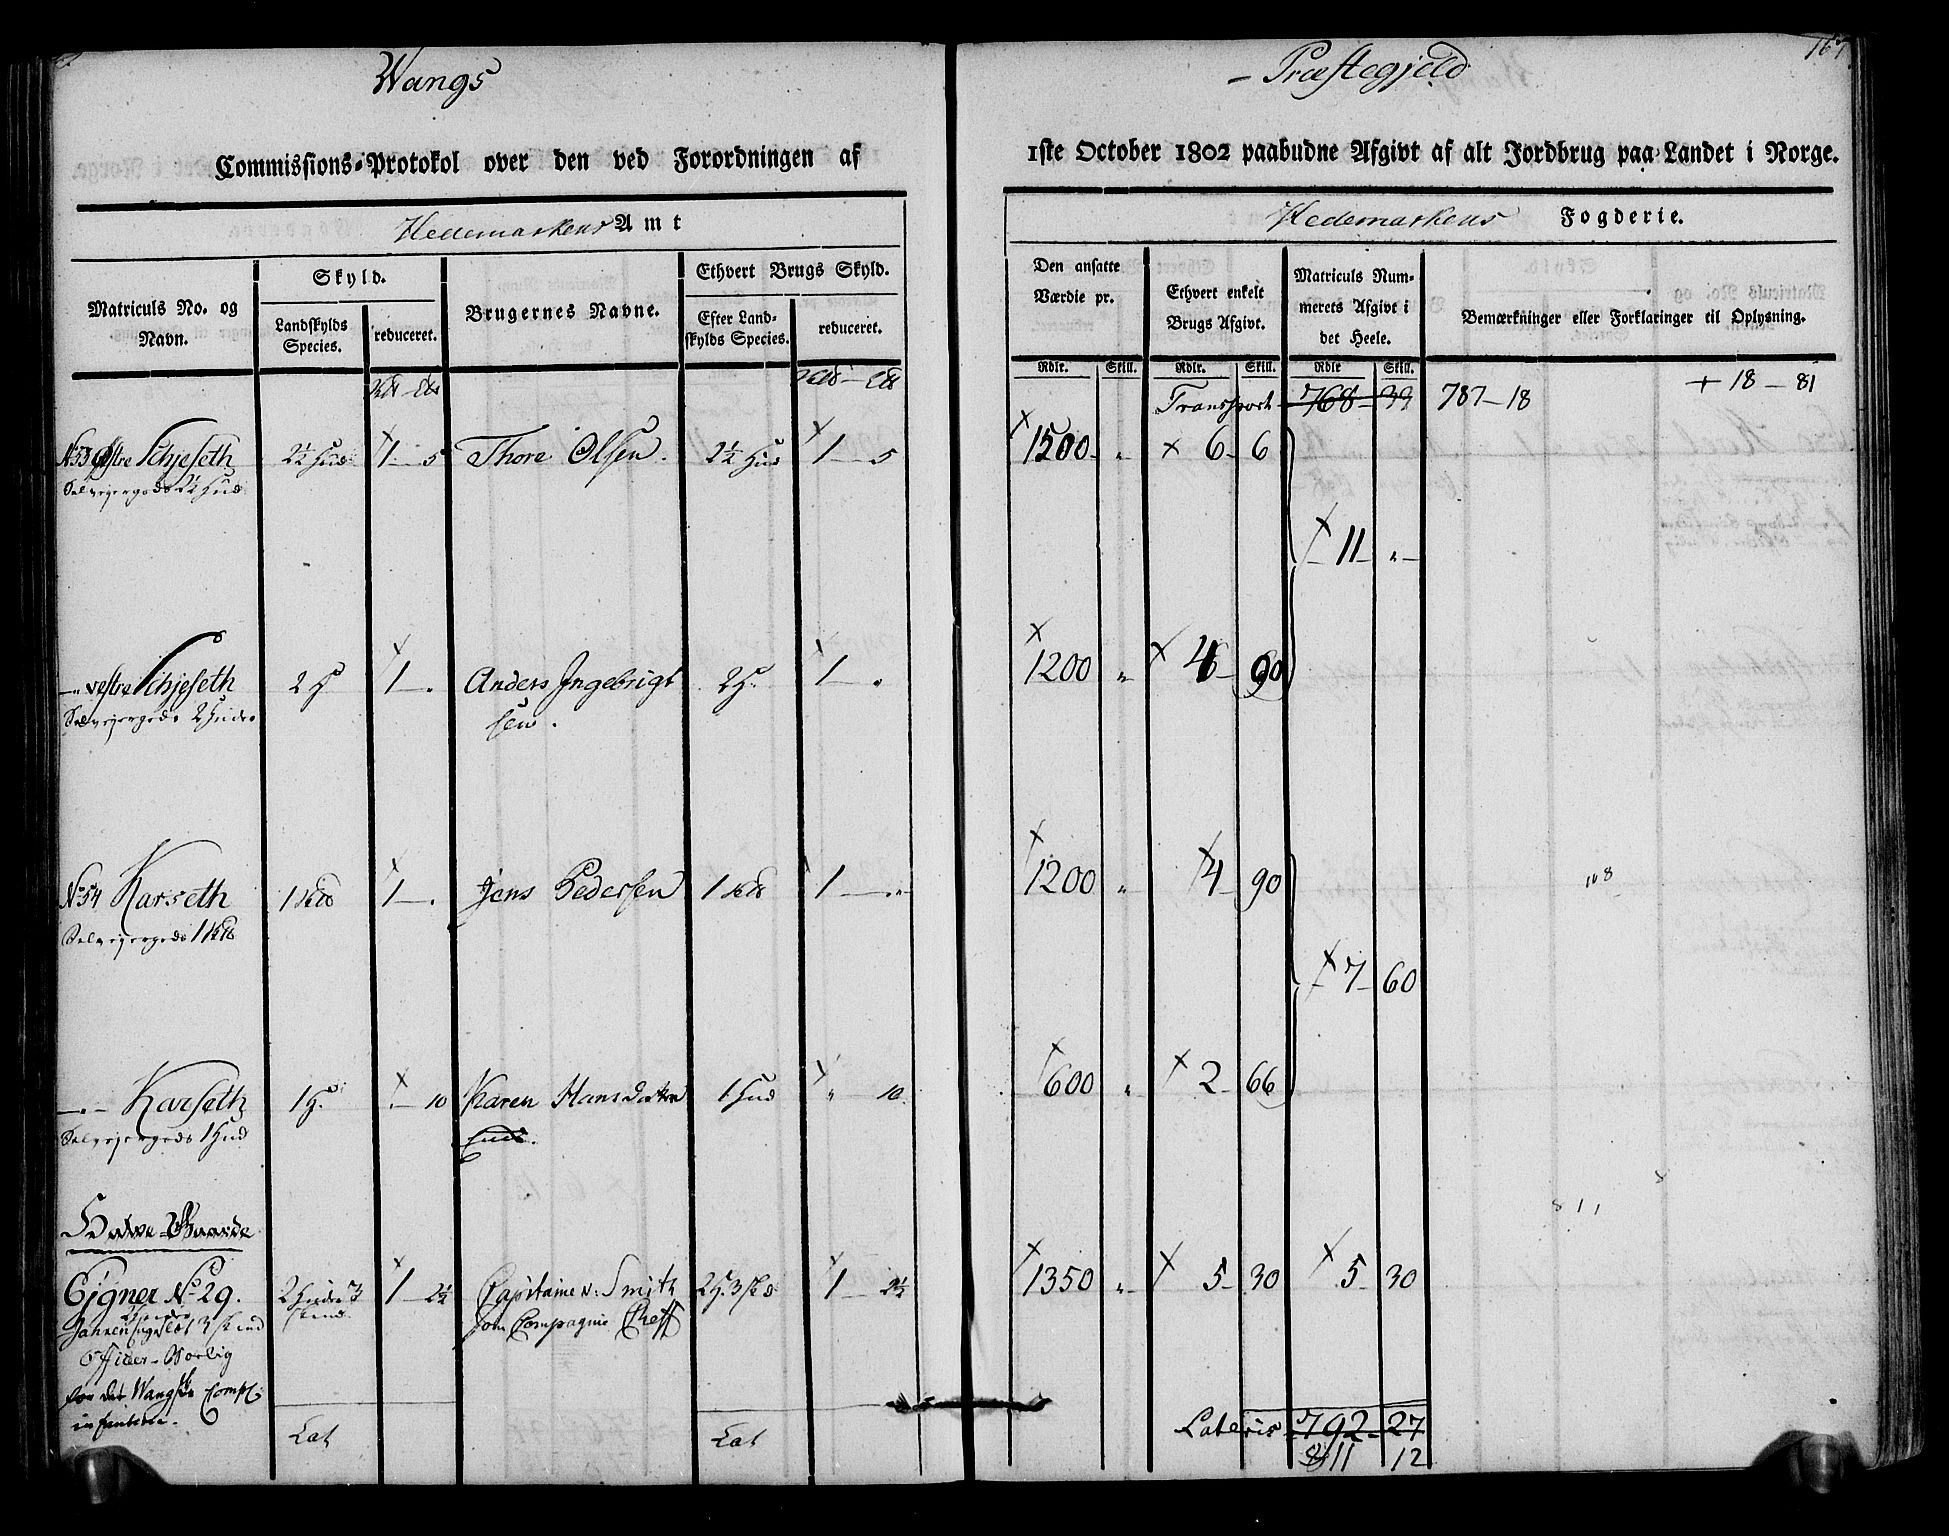 Wangs
Commissions-Protokol over den ved Forordningen af
Hedemarkens Amt
Matriculs No. og Navn.
Skyld.
Landskylds Species.
reduceret.
Brugernes Navne.
Ethvert Brugs Skyld.
Efter Landskylds Species.
reduceret.
No 53 østre Schjeseth 2½ Hud 1 - 5 Thore Olsen. 2½ Hud 1 - 5
Selvejergods 2½ Hud
- " vestre Schjeseth 2 H 1 - " Anders Ingebrigt 2 H. 1 "
Selvejergods 2 Huder sen.
No 54 Karseth 1 - " Jens Pedersen 1 - "
Selvejergods 1
- " - Karseth 1 H. " - 10 Karen Hansdatter 1 Hud " 10
Selvejergods 1 Hud
Ejgner No 29. 2 Huder 3 skind. 1 - 2½ Capitaine v: Smith 2 H. 3 1 - 2½
som Compagnie Cheff
Officer-Bolig
for det Wangske Comp:
infanterie.
Lat Lat
- Præstegjeld
1ste October 1802 paabudne Afgivt af alt Jordbrug paa Landet i Norge.
Hedemarkens Fogderie.
Den ansatte Værdie pr.
Ethvert enkelt Brugs Afgivt.
Matriculs Nummerets Afgivt i det Heele.
Bemærkninger eller Forklaringer til Oplysning.
Rdlr. Skill. Rdlr. Skill. Rdlr Skill.
Transport 768 - 39 787 - 18 + 18 - 81
1500 - " × 6 - 6
11 " -
1200 " 4 - 90
1200 " 4 - 90 108
7 - 60
600 " 2 - 66
811
1350 " 5 - 30 5 - 30
Lateris 792 - 27
811 12